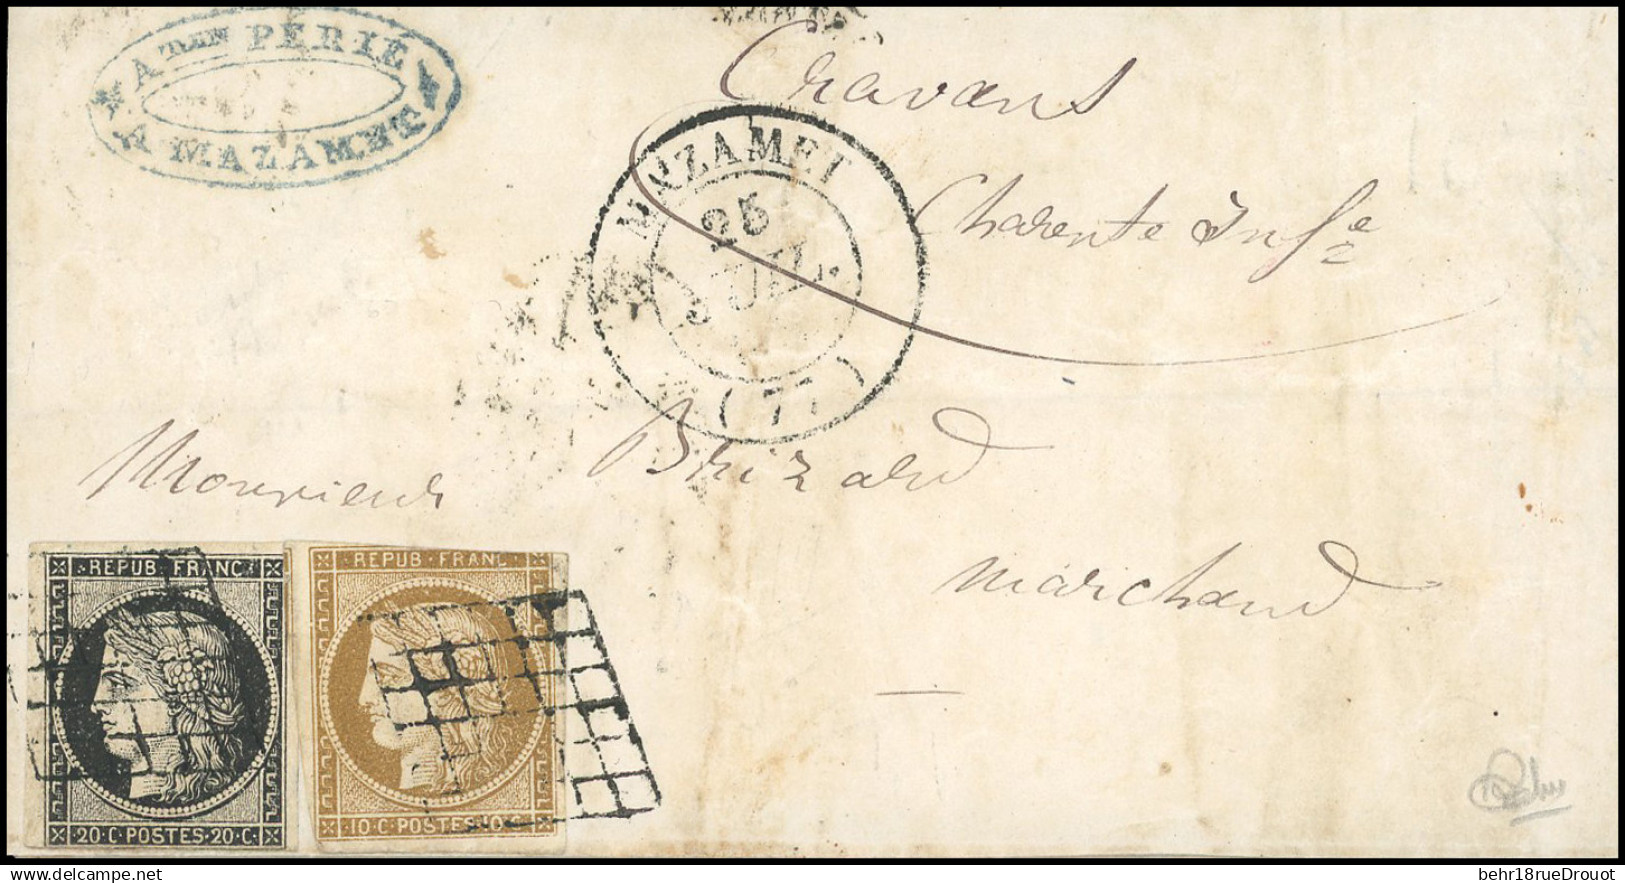 Aten PÉRIÉ
A MAZAMET
Cravans
MAZAMET
25
JUIL.
(77)
Charente Infe
Monsieur Brizard
marchand
REPUB·FRANC
20·C·POSTES·20·C·
REPUB·FRANC
10·C·POSTES·10·C
delcampe.net
behr18rueDrouot